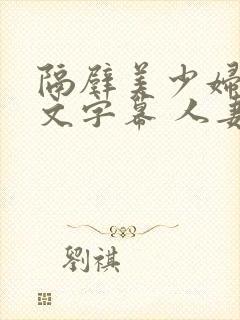 隔壁美少婦
文字幕 人妻
劉祺